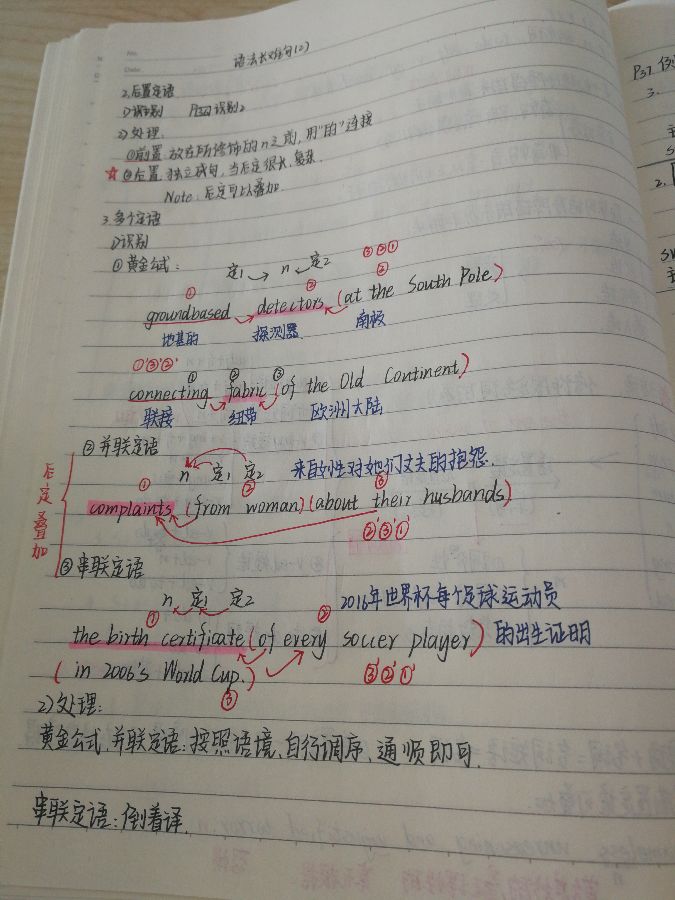 No.
Date
语法长难句(2)
2.后置定语
1)识别 P32 识别2
2)处理:
①前置:放在所修饰的n之前,用"的"连接
☆②后置:独立成句,当后定很长、复杂.
Note:后定可以叠加.
3.多个定语
1)识别
①黄金公式: 定1 → n ← 定2 ③②①
① ② ②
groundbased detectors (at the South Pole)
地基的 探测器 南极
①'③'②'
① ② ③
connecting fabric (of the Old Continent)
联接 纽带 欧洲大陆
②并联定语
n 定1 定2 来自女性对她们丈夫的抱怨.
① ② ③
complaints (from woman) (about their husbands)
②'③'①'
后定叠加
③串联定语
n 定1 定2 2016年世界杯每个足球运动员
① ②
the birth certificate (of every soccer player) 的出生证明
(in 2006's World Cup.) ③'②'①'
③
2)处理:
黄金公式、并联定语:按照语境、自行调序、通顺即可.
串联定语:倒着译.
P37
3.
2.